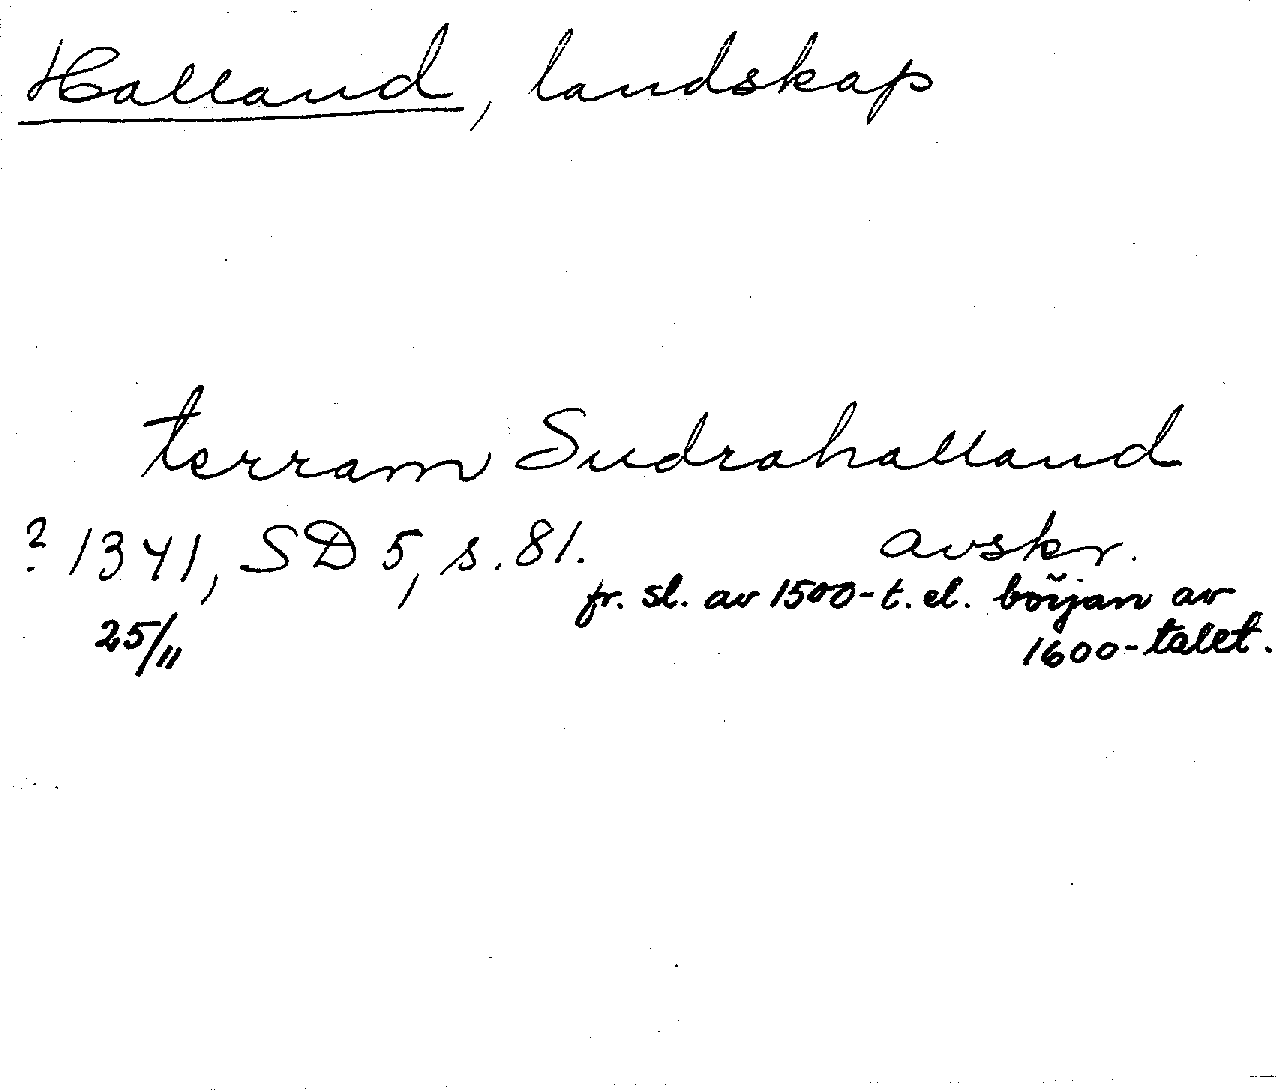 Halland, landskap
terram Sudrahalland
? 1341, SD 5, s. 81. avskr.
fr. sl. av 1500-t. el. början av
25/11 1600-talet.